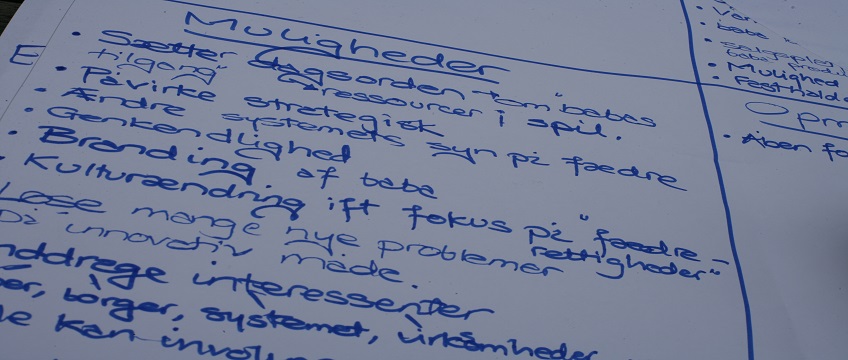 Muligheder
• Sætter dagsorden "om" babas
tilgang" ↳ ressourcer i spil.
• Påvirke strategisk
• Ændre systemets syn på fædre
• Genkendlighed af baba
• Branding.
• Kulturændring ift fokus på "fædre-
rettigheder"
Løse mange nye problemer
På innovativ måde.
nddrege interessenter
er, borger, systemet, virksomheder
e kan
E
• baba
• Mulighed
• Fasthold
Opm
• Åben fo